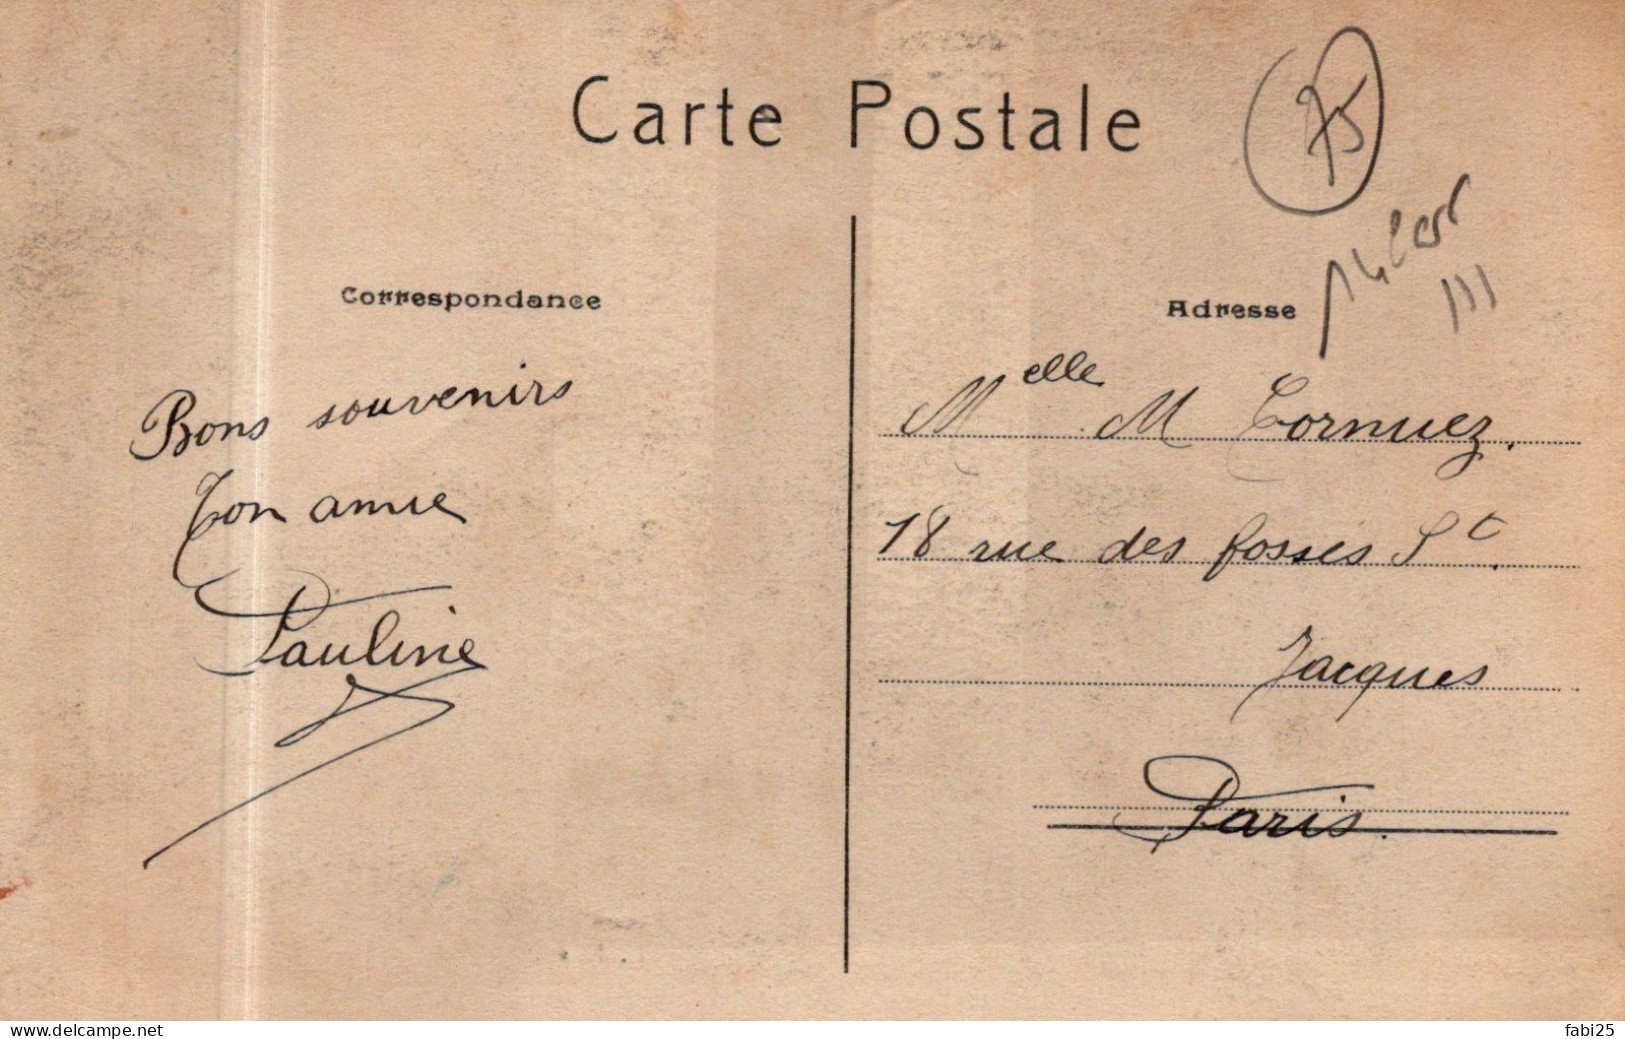 Carte Postale
75
III
Correspondance
Adresse
Bons souvenirs
Ton amie
Pauline
Melle M Cornuez.
18 rue des fossés St
Jacques
Paris.
www.delcampe.net
fabi25